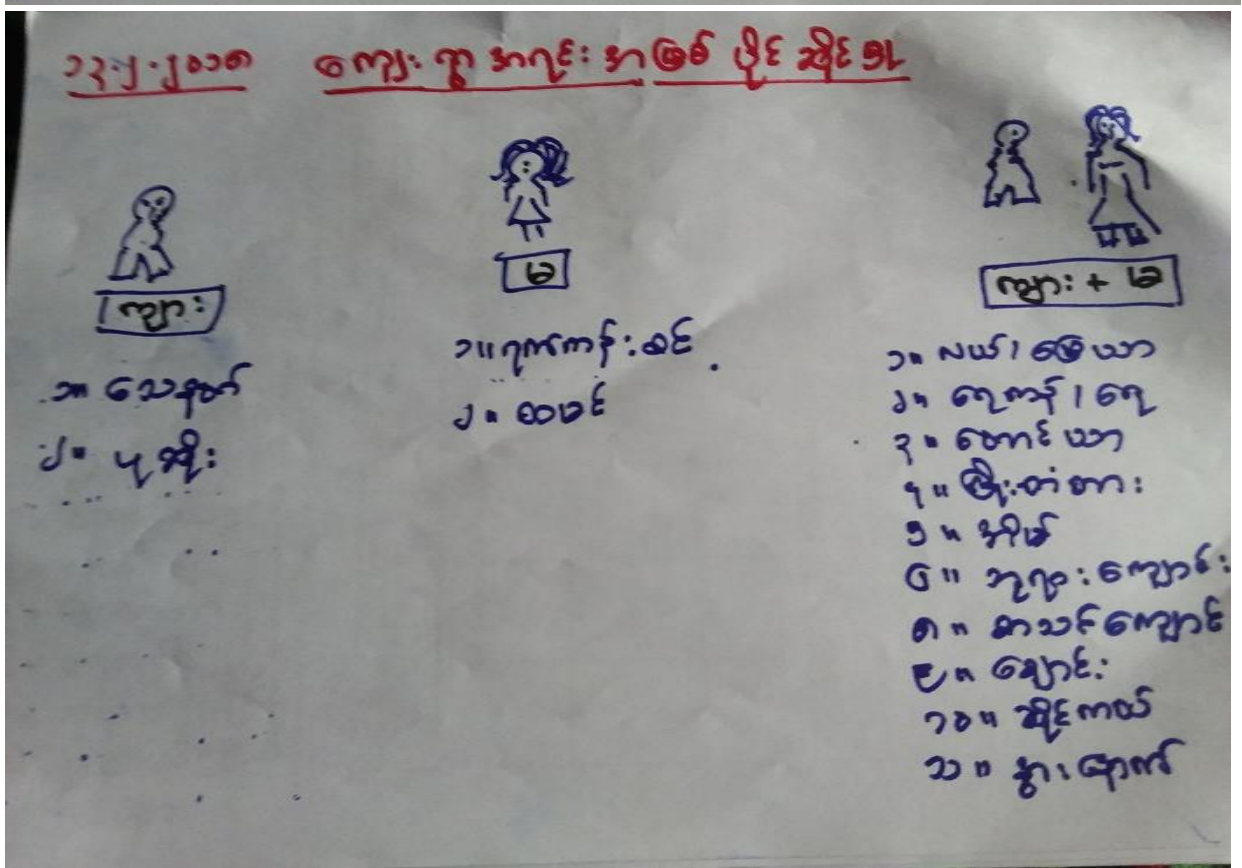 ၁၃.၂.၂၀၁၈ ကျေးရွာ အရင်း အမြစ် ပိုင်ဆိုင်မှု
ကျား
၁။ သေနတ်
၂။ ပုဆိုး
မ
၁။ ရက်ကန်းစင်
၂။ ထမင်
ကျား + မ
၁။ လယ်၊ မြေယာ
၂။ ရေကန်၊ ရေ
၃။ တောင်ယာ
၄။ မြိုးတံတား
၅။ အိမ်
၆။ ဘုရားကျောင်း
၈။ စာသင်ကျောင်
၉။ ချောင်း
၁၀။ ဆိုင်ကယ်
၁၁။ နွားနောက်